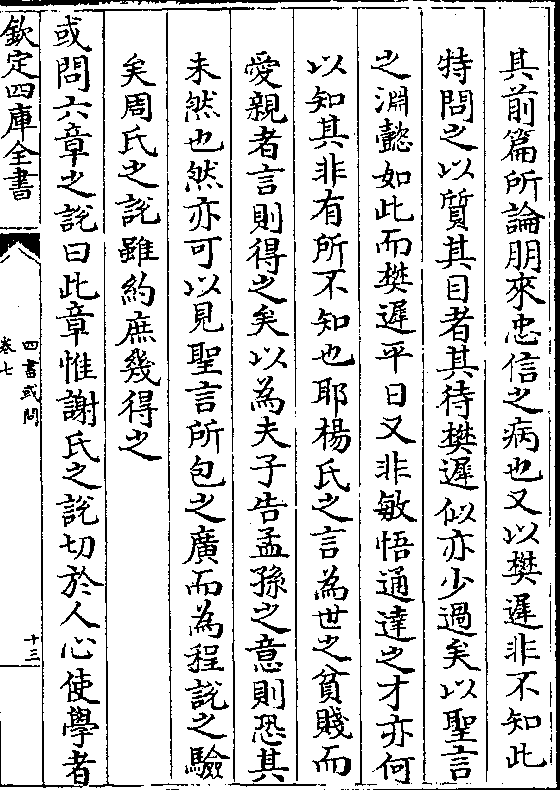 其前篇所論朋來忠信之病也又以樊遲非不知此
特問之以質其目者其待樊遲似亦少過矣以聖言
之淵懿如此而樊遲平日又非敏悟通達之才亦何
以知其非有所不知也耶楊氏之言為世之貧賤而
愛親者言則得之矣以為夫子告孟孫之意則恐其
未然也然亦可以見聖言所包之廣而為程說之驗
矣周氏之說雖約庶幾得之
或問六章之說曰此章惟謝氏之說切於人心使學者
欽定四庫全書
四書或問
卷七
十三